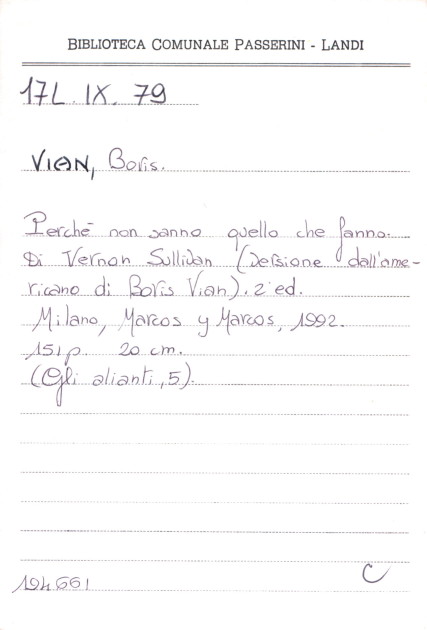 BIBLIOTECA COMUNALE PASSERINI - LANDI
17L. IX. 79
VIAN, Boris.
Perché non sanno quello che fanno.
Di Vernon Sullivan (versione dall'ame-
ricano di Boris Vian). 2ª ed.
Milano, Marcos y Marcos, 1992.
151 p. 20 cm.
(Gli alianti, 5).
194661
C